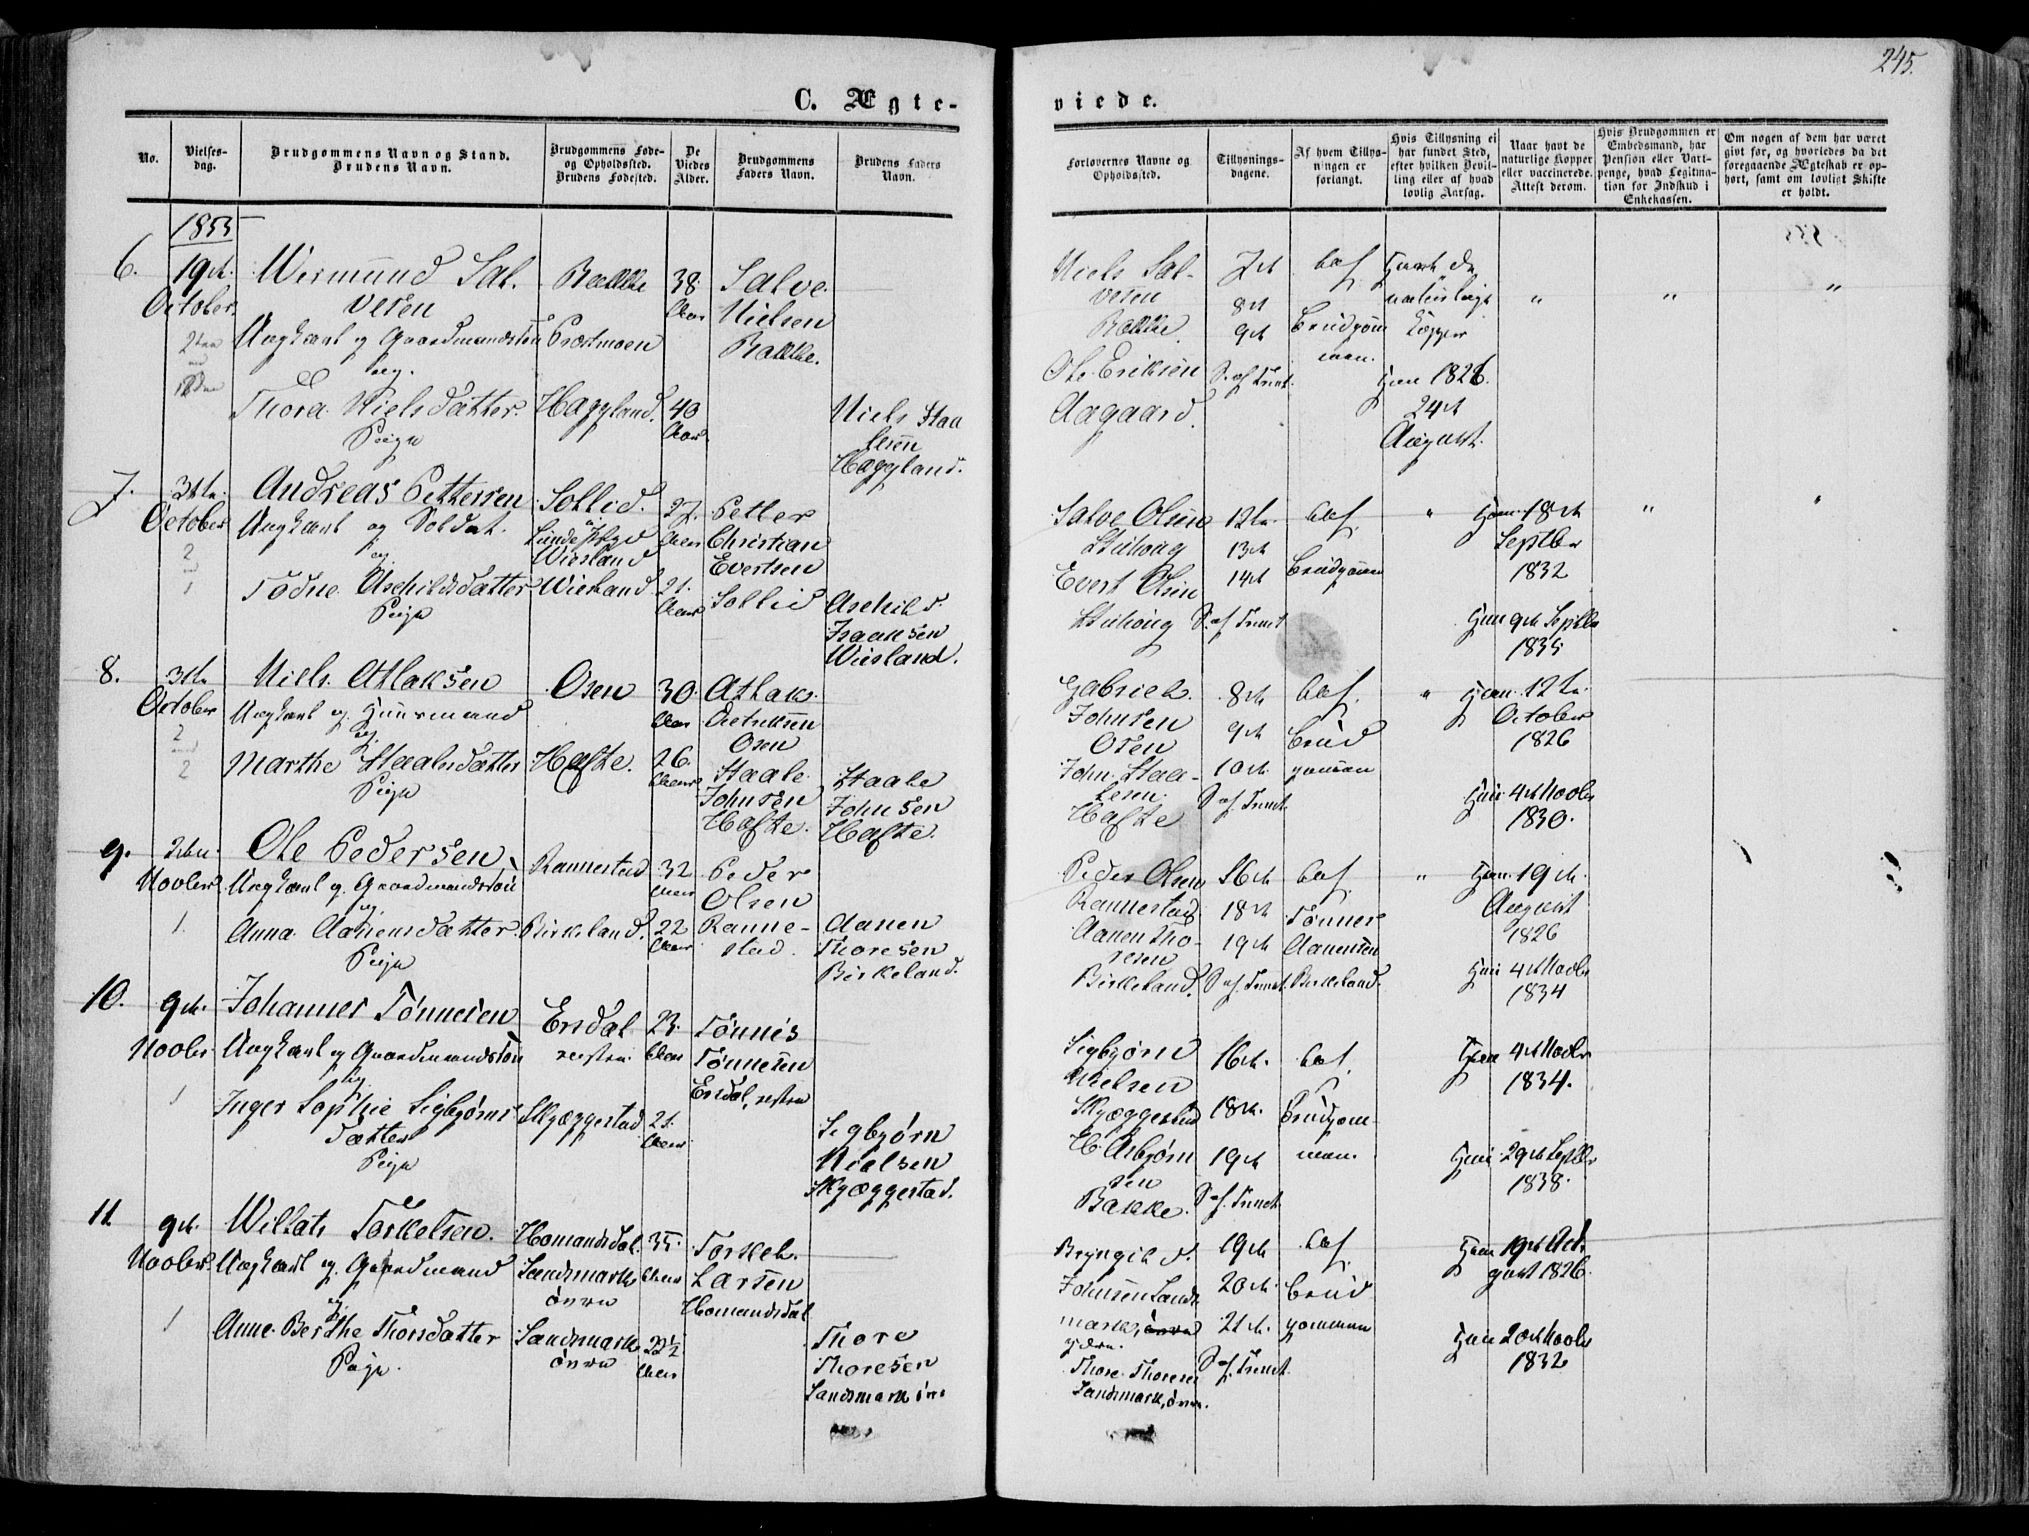 245.
C. Ægte-
viede.
No.
Vielses-
dag.
Brudgommens Navn og Stand.
Brudens Navn.
Brudgommens Føde-
og Opholdssted.
Brudens Fødested.
De
Viedes
Alder.
Brudgommens
Faders Navn.
Brudens Faders
Navn.
Forlovernes Navne og
Opholdssted.
Tillysnings-
dagene.
Af hvem Tillys-
ningen er
forlangt.
Hvis Tillysning ei
har fundet Sted,
efter hvilken Bevil-
ling eller af hvad
lovlig Aarsag.
Naar havt de
naturlige Kopper
eller vaccinerede.
Attest derom.
Hvis Brudgommen er
Embedsmand, har
Pension eller Vart-
penge, hvad Legitima-
tion for Indskud i
Enkekassen.
Om nogen af dem har været
givt før, og hvorledes da det
foregaaende Ægteskab er op-
hørt, samt om lovligt Skifte
er holdt.
1855
6.
19de
October
Wermund Sal-
vesen
Ungkarl og Gaardmandssøn
og
Thora Nielsdatter
Pige
Bakke
Præstmoen
Hægland.
38
Aar
40
Aar
Salve
Nielsen
Bakke.
Niels Staa
lesen
Hægland.
Niels Sal-
vesen
Bakke.
Ole Eriksen
Aagaard.
7de
8de
9de
S. af Trinit.
af
Brudgom
men.
Havt de
naturlige
Kopper
Hun 1826.
24de
August.
7.
31te
October
Andreas Pettersen
Ungkarl og Soldat.
og
Tødne Aschildsdatter
Pige
Sollid.
Wiesland
Wiesland
27.
Aar
21.
Aar
Petter
Christian
Evertsen
Sollid
Aschild
Isaaksen
Wiesland.
Salve Olsen
Evert Olsen
12te
13de
14de
S. af Trinit
af
Brudgommen
Han 18de
Septbr
1832
Hun 9de Septbr
1835
8.
31te
October
Niels Atlaksen
Ungkarl og Huusmand
og
Marthe Staalesdatter
Pige
Osen
Hafte.
30
Aar
26
Aar
Atlak
Osen
Staale
Johnsen
Hafte.
Staale
Johnsen
Hafte.
Gabriel
Johnsen
Osen
John Staa-
lesen
Hafte
8de
9de
10de
S. af Trinit
af
Brud
gommen
Han 12te
October
1826
Hun 4de Novbr
1830.
9.
2den
Novber
Ole Pedersen
Ungkarl og Gaardmandssøn
og
Anna Aanensdatter
Pige
Rannestad
Birkeland.
32
Aar
22
Aar
Peder
Olsen
Ranne-
stad.
Aanen
Thoresen
Birkeland.
Peder Olsen
Rannestad
Aanen Tho-
resen
Birkeland.
16de
18de
19de
S. af Trinit.
af
Tønnes
Aanensen
Birkeland.
Han 19de
August
1826
Hun 4de Novbr
1834
10.
9de
Novber
Johannes Tønnesen
Ungkarl og Gaardmandssøn
og
Inger Sophie Sigbjørns
datter
Pige
Ersdal
vestre
Skjæggestad
23.
Aar
21.
Aar
Tønnes
Tønnesen
Ersdal, vestre
Sigbjørn
Nielsen
Skjæggestad.
Sigbjørn
Nielsen
Skjæggestad
H. Asbjørn
sen
Bakke.
16de
18de
19de
S. af Trinit.
af
Brudgom-
men.
Han 4de Novbr
1834.
Hun 29de Septbr
1838.
11.
9de
Novber
Willats Torkelsen.
Ungkarl og Gaardmand
og
Anne Berthe Thorsdatter
Pige.
Homandsdal
Landsmark
øvre
Landsmark
øvre
35
Aar
22½
Aar
Torkel
Larsen
Homandsdal
Thore
Thoresen
Landsmark øvre
Bryngild
Johnsen Lands
mark, øvre
ydre.
Thore Thoresen
Landsmark, øvre.
19de
20de
21de
S. af Trinit.
af
Brud
gommen
Han 19de Au-
gust 1826.
Hun 20de Novbr
1832